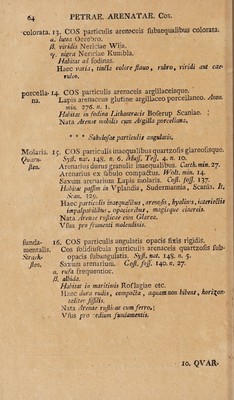 64 PETRAE. ARENATAE. Cos.
colorata. 13. COS particulis arenaceis subaequalibus colorata.
α. lutea Oerebro.
β. viridis Nericiae Wija.
γ. nigra Nericiae Kumbla.
Habitat ad fodinas.
Haec varia, tincta colore flavo, rubro, viridi aut cae-
ruleo.
porcella- 14. COS particulis arenaceis argillaceisque.
na. Lapis arenaceus glutine argillaceo porcellaneo. Aman.
min. 276. n. 1.
Habitat in fodina Lithanteracis Boserup Scaniae.
Nata Arenae mobilis cum Argilla porcellana.
* * * Subdiosae particulis angularis.
Molaris. 15. COS particulis inaequalibus quartzosis glareosisque.
Quarn- Syst. nat. 148. n. 6. Muss. Tess. 4. n. 10.
sten. Arenarius durus granulis inaequalibus. Carth. min. 27.
Arenarius ex sabulo compactus. Wolt. min. 14.
Saxum arenarium Lapis molaris. Gest. foss. 137.
Habitat passim in Vplandia, Sudermannia, Scania. It.
Scan. 129.
Haec particulis inaequalibus, arenosis, hyalinis, interiectis
impalpabilibus, opacioribus, magisque cinereis.
Nata Arenae rusticae cum Glarea.
Vsus pro frumenti molendinis.
funda- 16. COS particulis angulatis opacis fixis rigidis.
mentalis. Cos solidiuscula particulis arenaceis quartzosis sub-
Strack- opacis subangulatis. Syst. nat. 148. n. 5.
sten. Saxum arenarium. Gest. foss. 140. n. 27.
α. rufa frequentior.
β. albida.
Habitat in maritimis Roslagiae etc.
Haec dura rudis, compacta, aquam non bibens, horizon-
taliter fissilis.
Nata Arenae rusticae cum ferro.
Vsus pro aedium fundamentis.
10. QVAR-